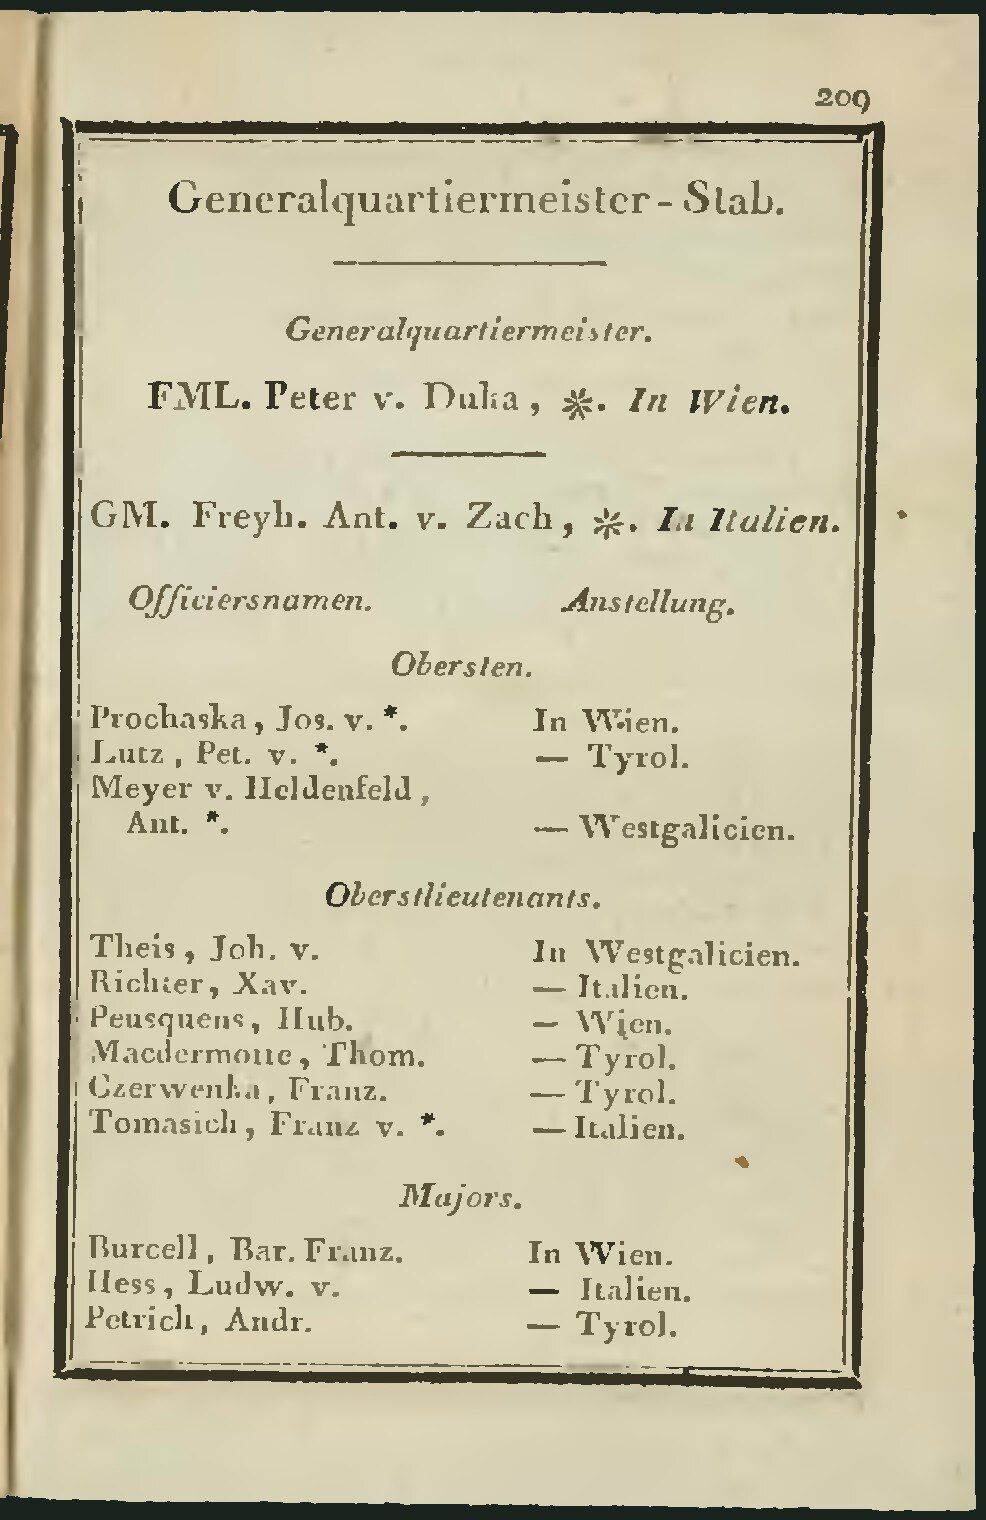 209
Generalquartiermeister-Stab.
Generalquartiermeister.
FML. Peter v. Duka, ❋. In Wien.
GM. Freyh. Ant. v. Zach, ❋. In Italien.
Officiersnamen. Anstellung.
Obersten.
Prochaska, Jos. v. *. In Wien.
Lutz, Pet. v. *. — Tyrol.
Meyer v. Heldenfeld,
Ant. *. — Westgalicien.
Oberstlieutenants.
Theis, Joh. v. In Westgalicien.
Richter, Xav. — Italien.
Peusquens, Hub. — Wien.
Macdermotte, Thom. — Tyrol.
Czerwenka, Franz. — Tyrol.
Tomasich, Franz v. *. — Italien.
Majors.
Burcell, Bar. Franz. In Wien.
Hess, Ludw. v. — Italien.
Petrich, Andr. — Tyrol.